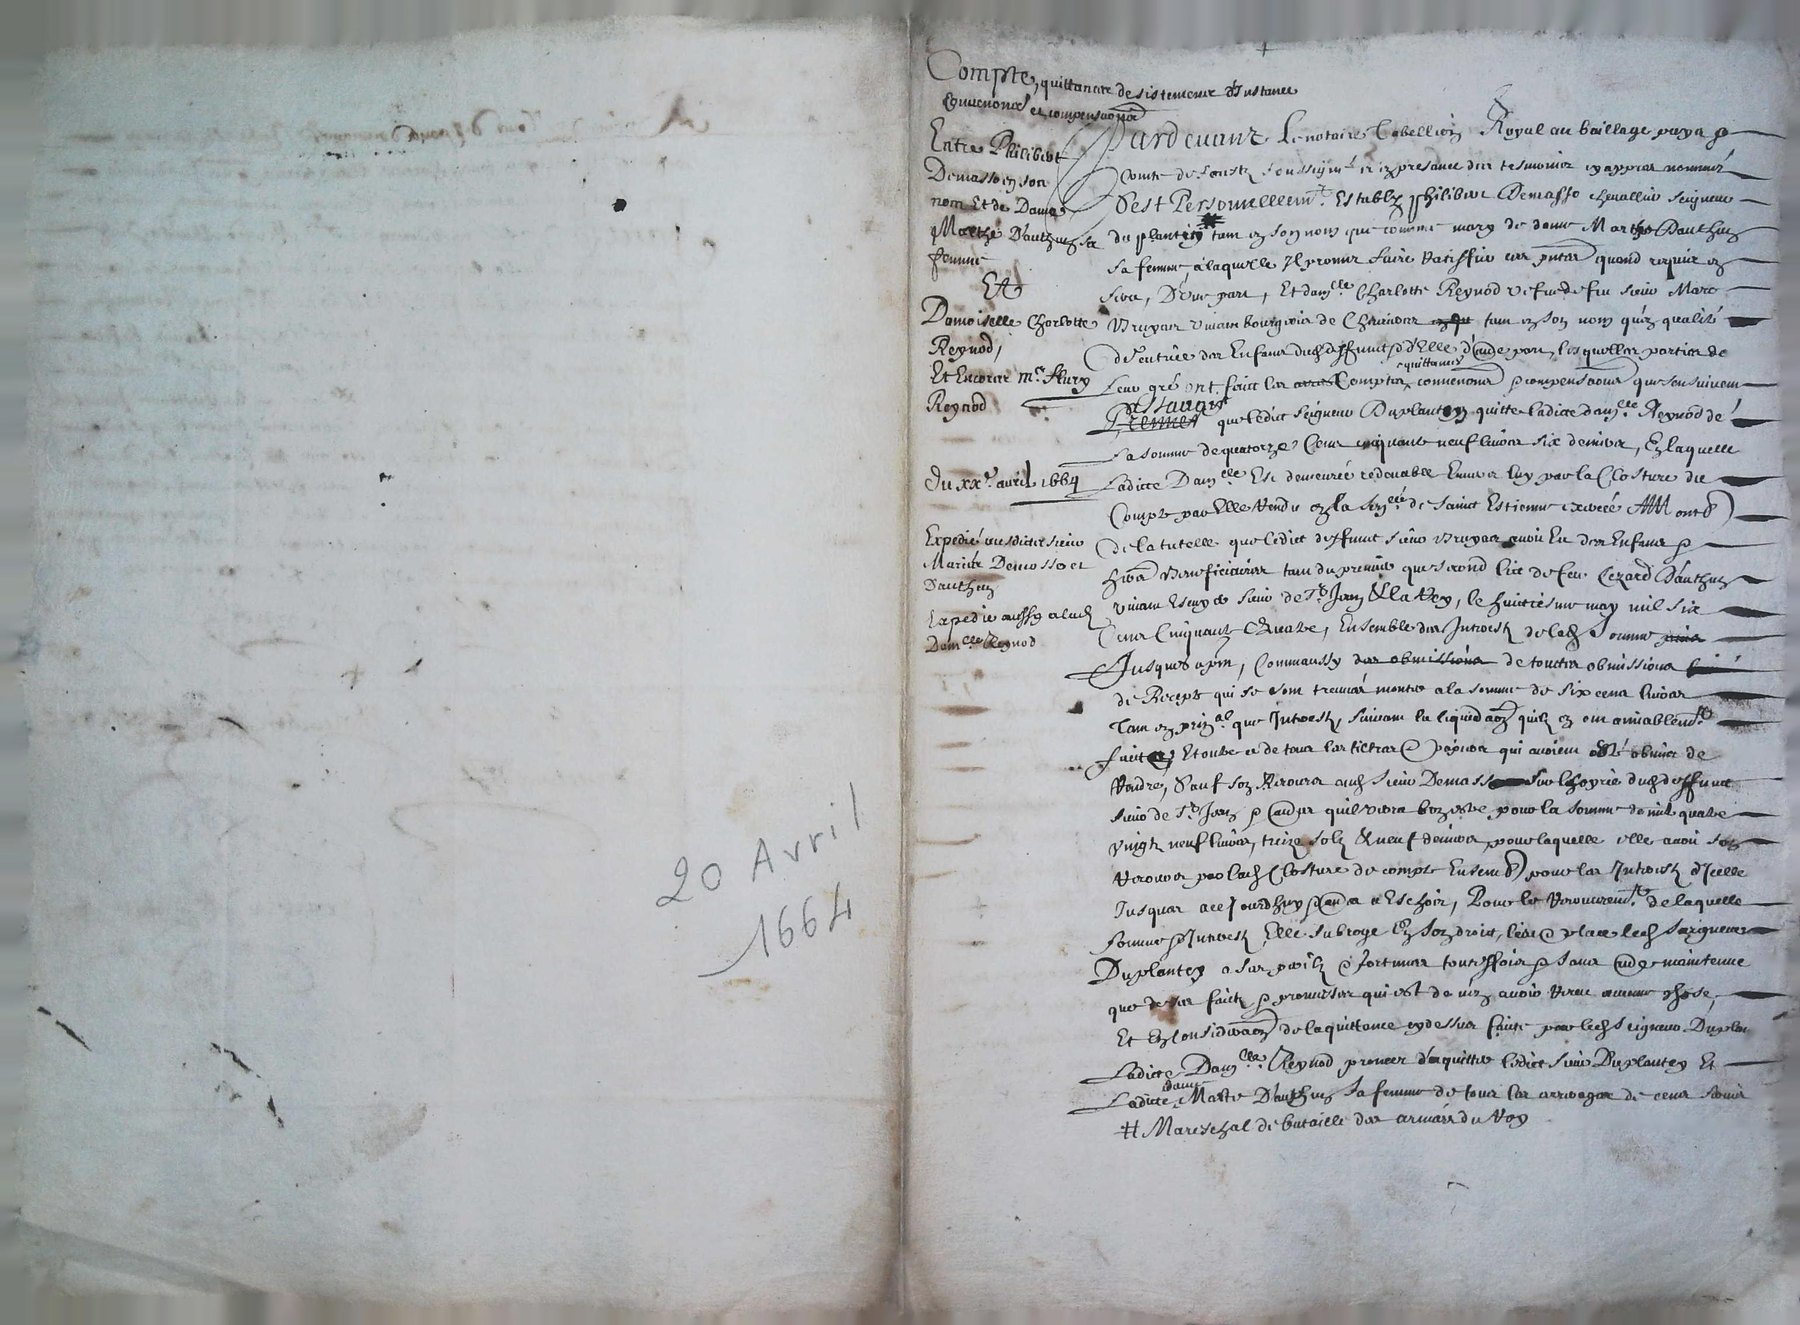 20 Avril
1664
Compte, quittance desistement d'Instance
Convenõnes et compensaõn
Entre Philibert
Demasso en son
nom Et de Dame
Marthe Dauthun sa
femme
Et
Damoiselle Charlotte
Reynod,
Et Encores mre flury
Reynod
Du xxe. avril 1664
Expedié ausdicts sieur
Mariés Demasso et
Dauthun
Expedie aussy a lad
Damlle Reynod
Pardevant Le notaire Tabellion Royal au bailliage pays &
Comté de forestz soussigné et en presence des tesmoins cy appres nommés
S'est Personnellemt. Estably philibert Demasso chevallier seigneur
du plantey # tant en son nom que comme mary de dame Marthe Dauthun
sa femme, a laquelle Il promet faire ratiffier ces pntes quand requis en
sera, D'une part, Et damlle Charlotte Reynod vefve de feu sieur Marc
Bruyas vivant bourgeois de Chavanes tant en son nom qu'en qualité
de tutrice des Enfans dud deffunct & d'Elle d'autre part, lesquelles parties de
leur gré ont faict les Comptes quittances convenõns & compensaõns que sensuivent
Assavoir que ledict seigneur Duplantey quitte ladicte damlle. Reynod de
la somme de quatorze Cent cinquante neuf livres six deniers, En laquelle
Ladicte Damlle Est demeurée redevable Envers luy par la Closture du
Compte par Elle Rendu en la de Sainct Estienne
de la tutelle que ledict deffunct sieur Bruyas avoit Eu des Enfans &
heers Beneficiaires tant du premier que second lict de feu Cezard Dauthun
vivant Escuyer sieur de St. Jean & la Rey, le huictiesme may mil six
Cens Cinquante Quatre, Ensemble des Interestz de lad somme
Jusques a pnt, Comme aussy des obmissions de touttes obmissions
de Recepte qui se sont treuvées monter a la somme de six cens livres
Tant en prinal que Interestz, suivant la liquidaõn quilz en ont amiablemt.
faicte, Et oultre ce de tous les tictres & papiers qui avoient esté obmis de
Rendre, Sauf son Recours aud sieur Demasso sur l'hoyrie dud deffunct
sieur de St. Jean & quil verra bon estre, pour la somme de mil quatre
vingtz neuf livres, treize solz & neuf deniers pour laquelle elle avoit son
recours par lad Closture de compte Ensemb pour les Interestz d'Icelle
Jusques a ce Jourdhuy & a Eschoir, Pour le recouvremt. de laquelle
somme & Interestz Elle subroge En son droict, lieu & place led seigneur
Duplantey a ses perilz & fortunes touttesfois & sans maintenue
que de ses faictz & promesses qui est de n'en avoir receu aucune chose,
Et En Consideraõn de la quittance cy dessus faicte par led seigneur Duplan
Ladicte Damlle. Reynod promet d'acquitter ledict sieur Duplantey Et
Ladicte dame Marthe Dauthun sa femme de tous les arrerages de cens
# Mareschal de bataille des armées du Roy